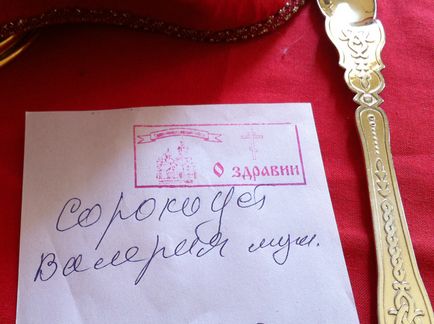 О здравии
Сорокоуст
Валерия муж.